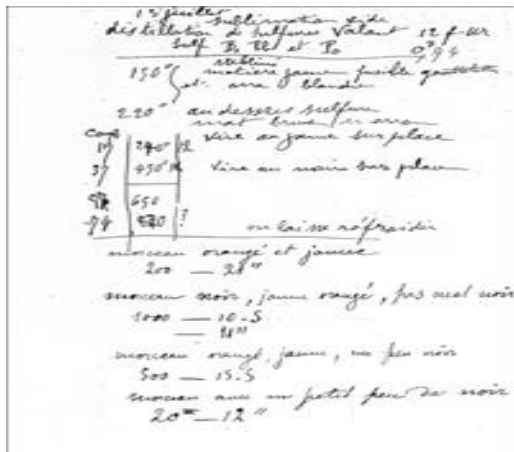 13 juillet
sublimation vide
distillation de sulfures valant 12 f. ur
Sulf Bi et Po
sublimé
150° matière jaune fusible
et blanche
220° au dessus sulfure
mat brune
240° vire au jaune sur place
37 450° vire au noir sur place
650
74 ? on laisse refroidir
morceau orangé et jaune
200 — 21"
morceau noir, jaune orangé, pas mal noir
1000 — 10.5
morceau orangé, jaune, un peu noir
500 — 15.5
morceau avec un petit peu de noir
20 — 12"